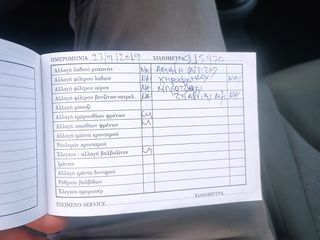 ΗΜΕΡΟΜΗΝΙΑ 23/9/2019 ΧΙΛΙΟΜΕΤΡΑ
Αλλαγή λαδιού μηχανής ΝΑΙ
Αλλαγή φίλτρου λαδιού ΝΑΙ ΝΑΙ
Αλλαγή φίλτρου αέρος ΝΑΙ
Αλλαγή φίλτρου βενζίνας-πετρελ. ΝΑΙ
Αλλαγή μπουζί
Αλλαγή εμπροσθίων φρένων
Αλλαγή οπισθίων φρένων
Αλλαγή ιμάντα χρονισμού
Ρουλεμάν χρονισμού
Έλεγχος - αλλαγή βαλβολίνες
Ιμάντες
Αλλαγή ιμάντα δυναμού
Ρύθμιση βαλβίδων
Έλεγχος αμορτισέρ
ΕΠΟΜΕΝΟ SERVICE ΧΙΛΙΟΜΕΤΡΑ